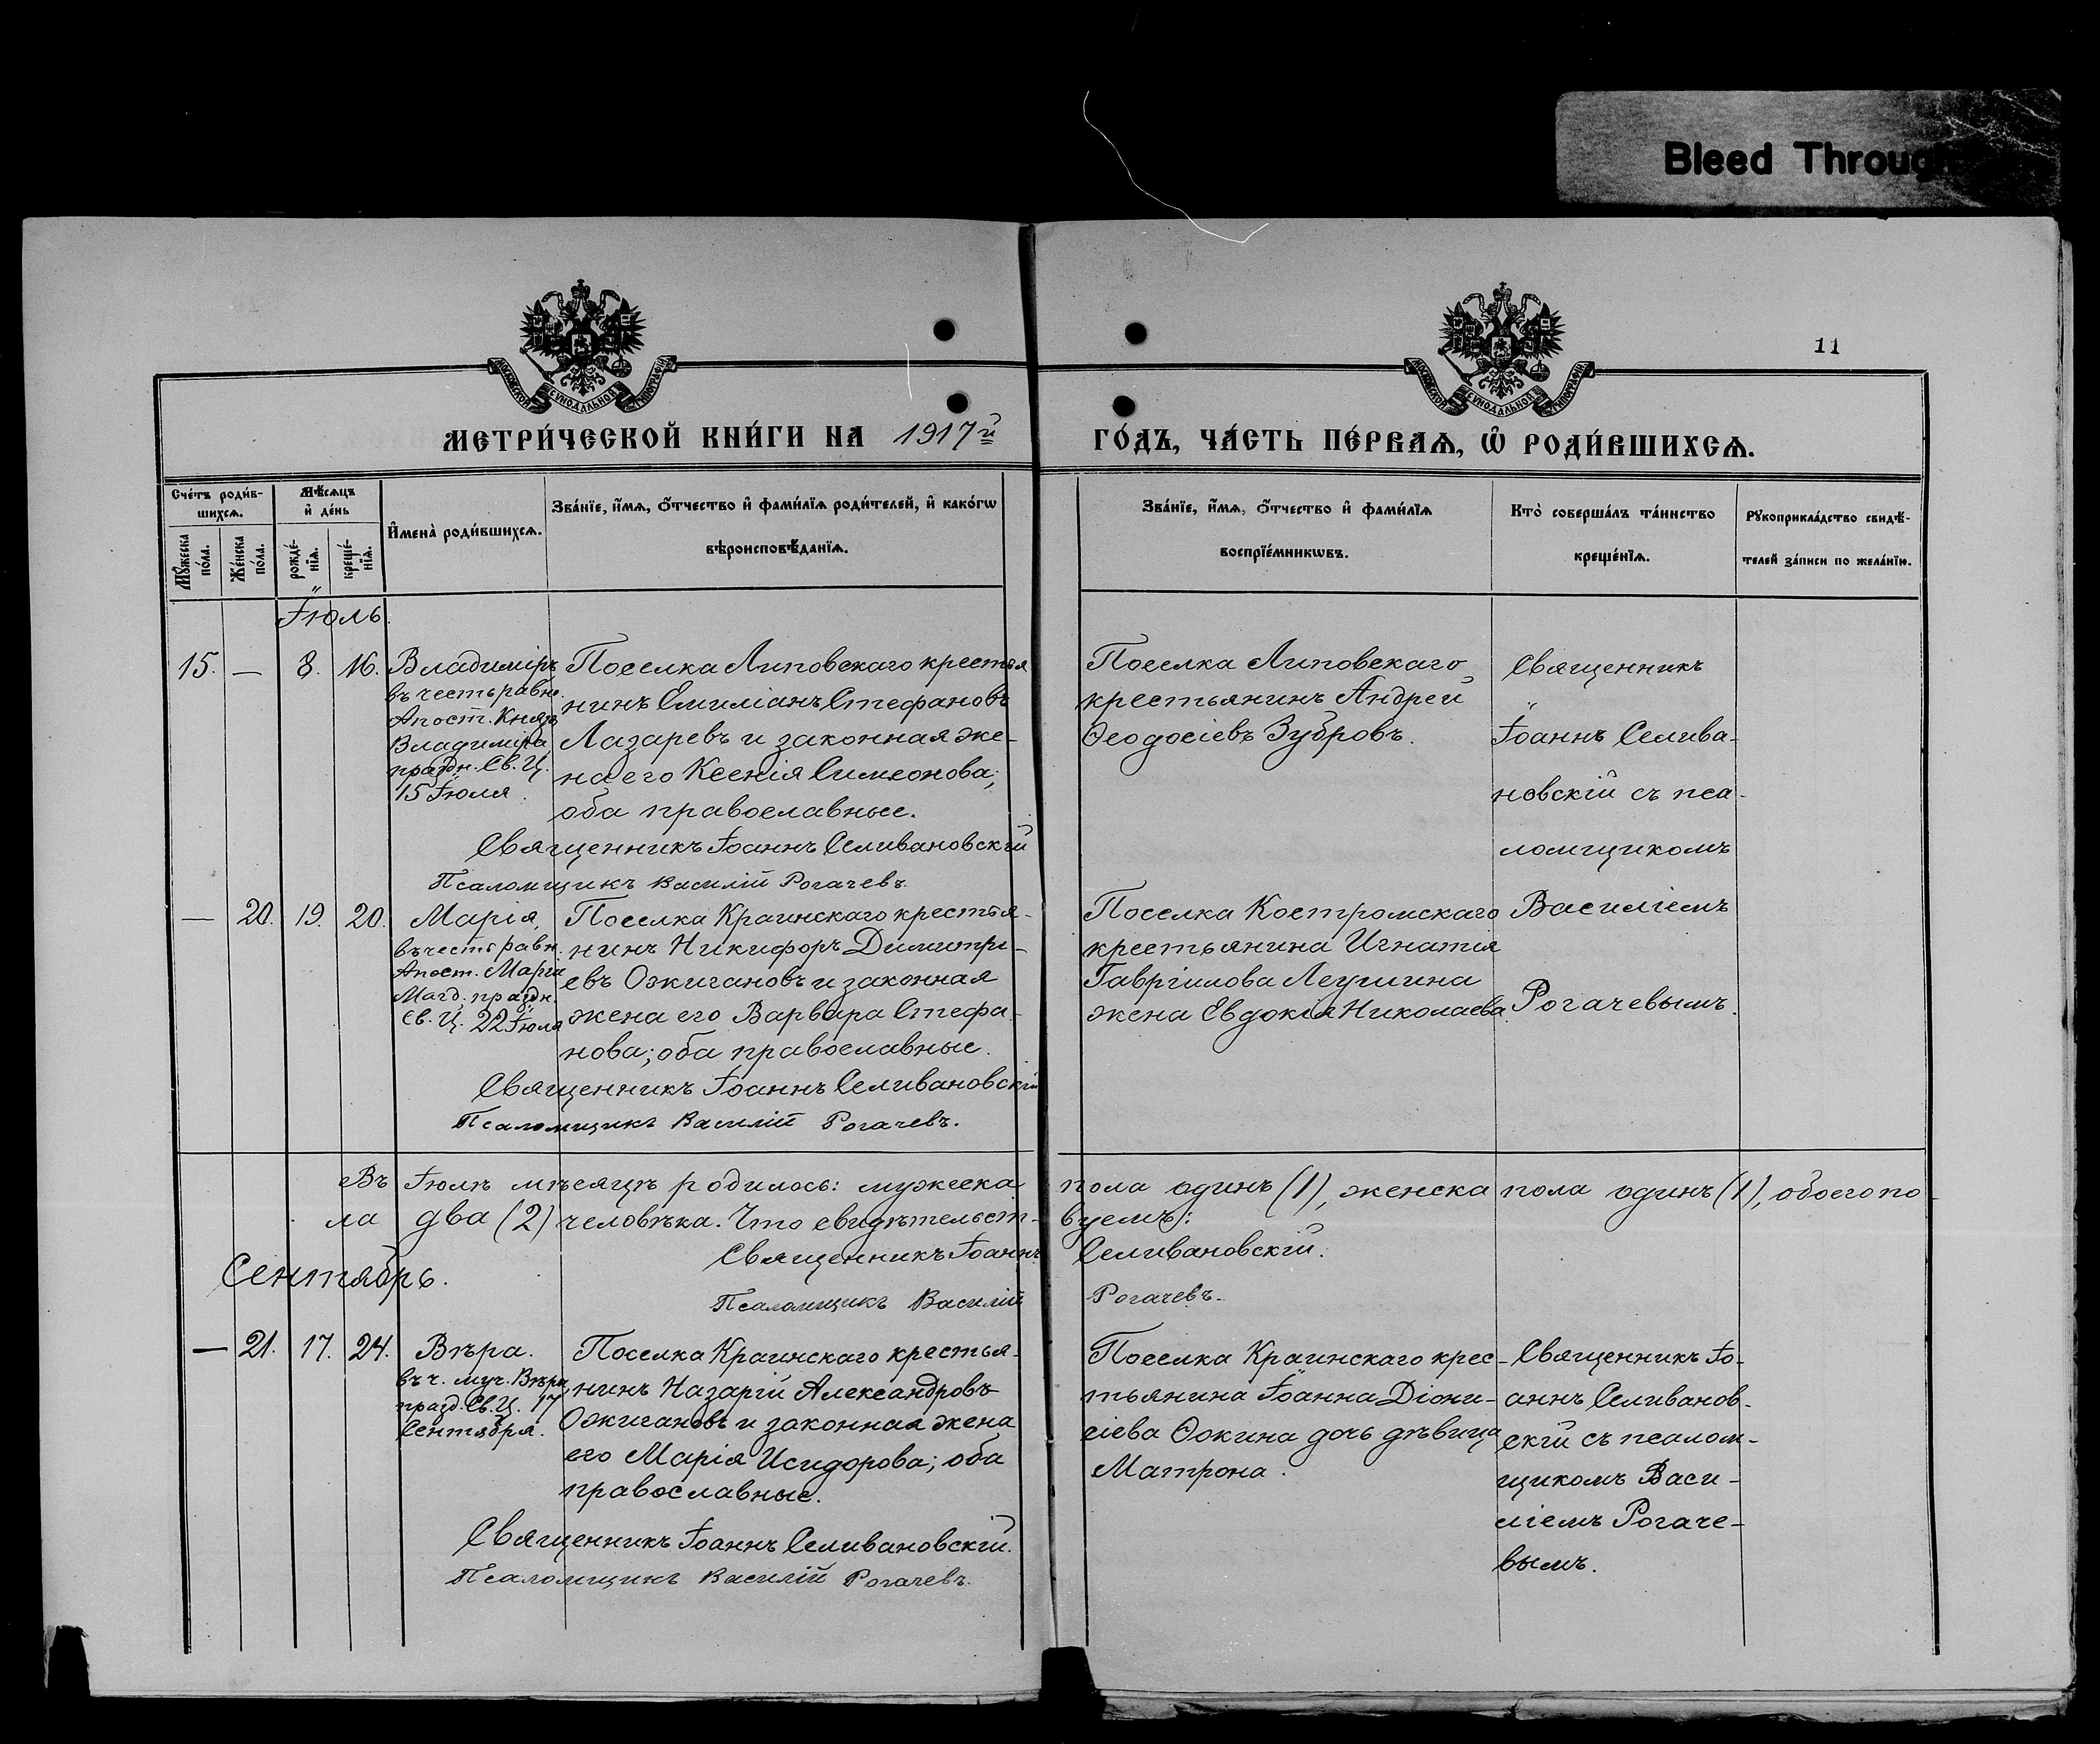 Bleed Through
11
МОСКОВСКОЙ СѴНОДАЛЬНОЙ ТИПОГРАФІИ
МОСКОВСКОЙ СѴНОДАЛЬНОЙ ТИПОГРАФІИ
МЕТРИ́ЧЕСКОЙ КНИ́ГИ НА 1917й ГО́ДЪ, ЧА́СТЬ ПЕ́РВАѦ, Ѡ҆ РОДИ́ВШИХСѦ.
Сче́тъ роди́в-
шихсѧ.
Мꙋ́жеска
по́ла.
Же́нска
по́ла.
Мѣ́сѧцъ
и҆ де́нь
рожде́-
нїѧ.
креще́-
нїѧ.
И҆мена̀ роди́вшихсѧ.
Зва́нїе, и҆́мѧ, ѻ҆́тчество и҆ фами́лїѧ роди́телей, и҆ како́гѡ
вѣроисповѣ́данїѧ.
Зва́нїе, и҆́мѧ, ѻ҆́тчество и҆ фами́лїѧ
воспрїе́мникѡвъ.
Кто̀ соверша́лъ та́инство
креще́нїѧ.
Рꙋкоприкла́дство свидѣ́-
телей за́писи по жела́нїю.
Іюль.
15. — 8. 16.
Владиміръ
въ честь равно.
Апост. Князя
Владиміра,
праздн. Св. Ц.
15 Іюля.
Поселка Липовскаго крестья
нинъ Емиліанъ Стефановъ
Лазаревъ и законная же-
на его Ксенія Симеонова;
оба православные.
Священникъ Іоаннъ Селивановскій
Псаломщикъ Василій Рогачевъ.
Поселка Липовскаго
крестьянинъ Андрей
Ѳеодосіевъ Зубровъ.
Священникъ
Іоаннъ Селива-
новскій съ пса-
ломщикомъ
Василіемъ
Рогачевымъ.
— 20. 19. 20.
Марія,
въ честь равн.
Апост. Маріи
Магд. праздн.
Св. Ц. 22 Іюля
Поселка Краинскаго крестья-
нинъ Никифоръ Димитрі-
евъ Ожигановъ и законная
жена его Варвара Стефа-
нова; оба православные.
Священникъ Іоаннъ Селивановскій
Псаломщикъ Василій Рогачевъ.
Поселка Костромскаго
крестьянина Игнатія
Гавріилова Леушина
жена Евдокія Николаева.
Въ Іюлѣ мѣсяцѣ родилось: мужеска пола одинъ (1), женска пола одинъ (1), обоего по-
ла два (2) человѣка. Что свидѣтельст- вуемъ:
Священникъ Іоаннъ Селивановскій.
Сентябрь.
Псаломщикъ Василій Рогачевъ.
— 21. 17. 24.
Вѣра.
въ ч. муч. Вѣры,
празд. Св. Ц. 17
Сентября.
Поселка Краинскаго крестья-
нинъ Назарій Александровъ
Ожигановъ и законная жена
его Марія Исидорова; оба
православные.
Священникъ Іоаннъ Селивановскій.
Псаломщикъ Василій Рогачевъ.
Поселка Краинскаго крес-
тьянина Іоанна Діони-
сіева Ѳокина дочь дѣвица
Матрона.
Священникъ Іо-
аннъ Селиванов-
скій съ псалом-
щикомъ Васи-
ліемъ Рогаче-
вымъ.